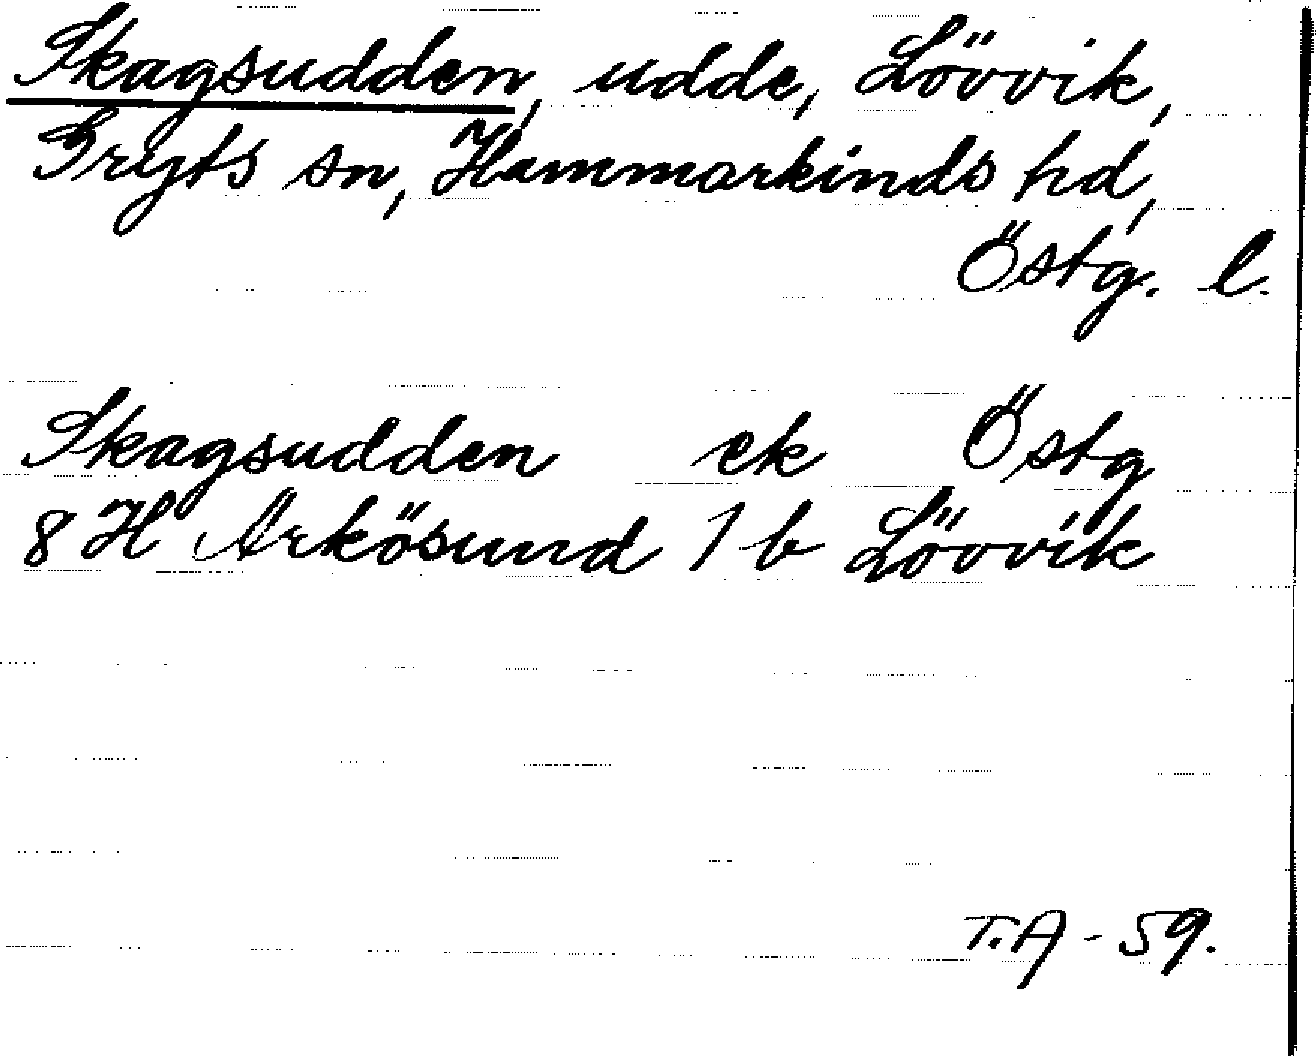 Skagsudden, udde, Lövvik,
Gryts sn, Hammarkinds hd,
Östg. l.
Skagsudden ek Östg
8 H Arkösund 1 b Lövvik
T.A - 59.